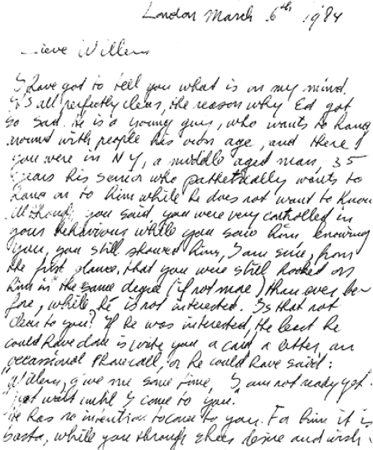 London March 6th 1984
Lieve Willem
I have got to tell you what is on my mind.
It's all perfectly clear, the reason why Ed got
so sad. He is a young guy, who wants to hang
around with people his own age, and there
you were in NY, a middle aged man, 35
years his senior who pathetically wants to
hang on to him while he does not want to know.
Although, you said, you were very controlled in
your behaviour while you saw him, knowing
you, you still showed him, I am sure, from
the first glance, that you were still hooked on
him in the same degree (if not more) than ever be-
fore, while he is not interested. Is that not
clear to you? If he was interested, the least he
could have done is write you a card a letter, an
occassional phonecall, or he could have said:
"Willem, give me some time, I am not ready yet.
just wait until I come to you."
He has no intention to come to you. For him it is
basta, while you through sheer desire and wish-